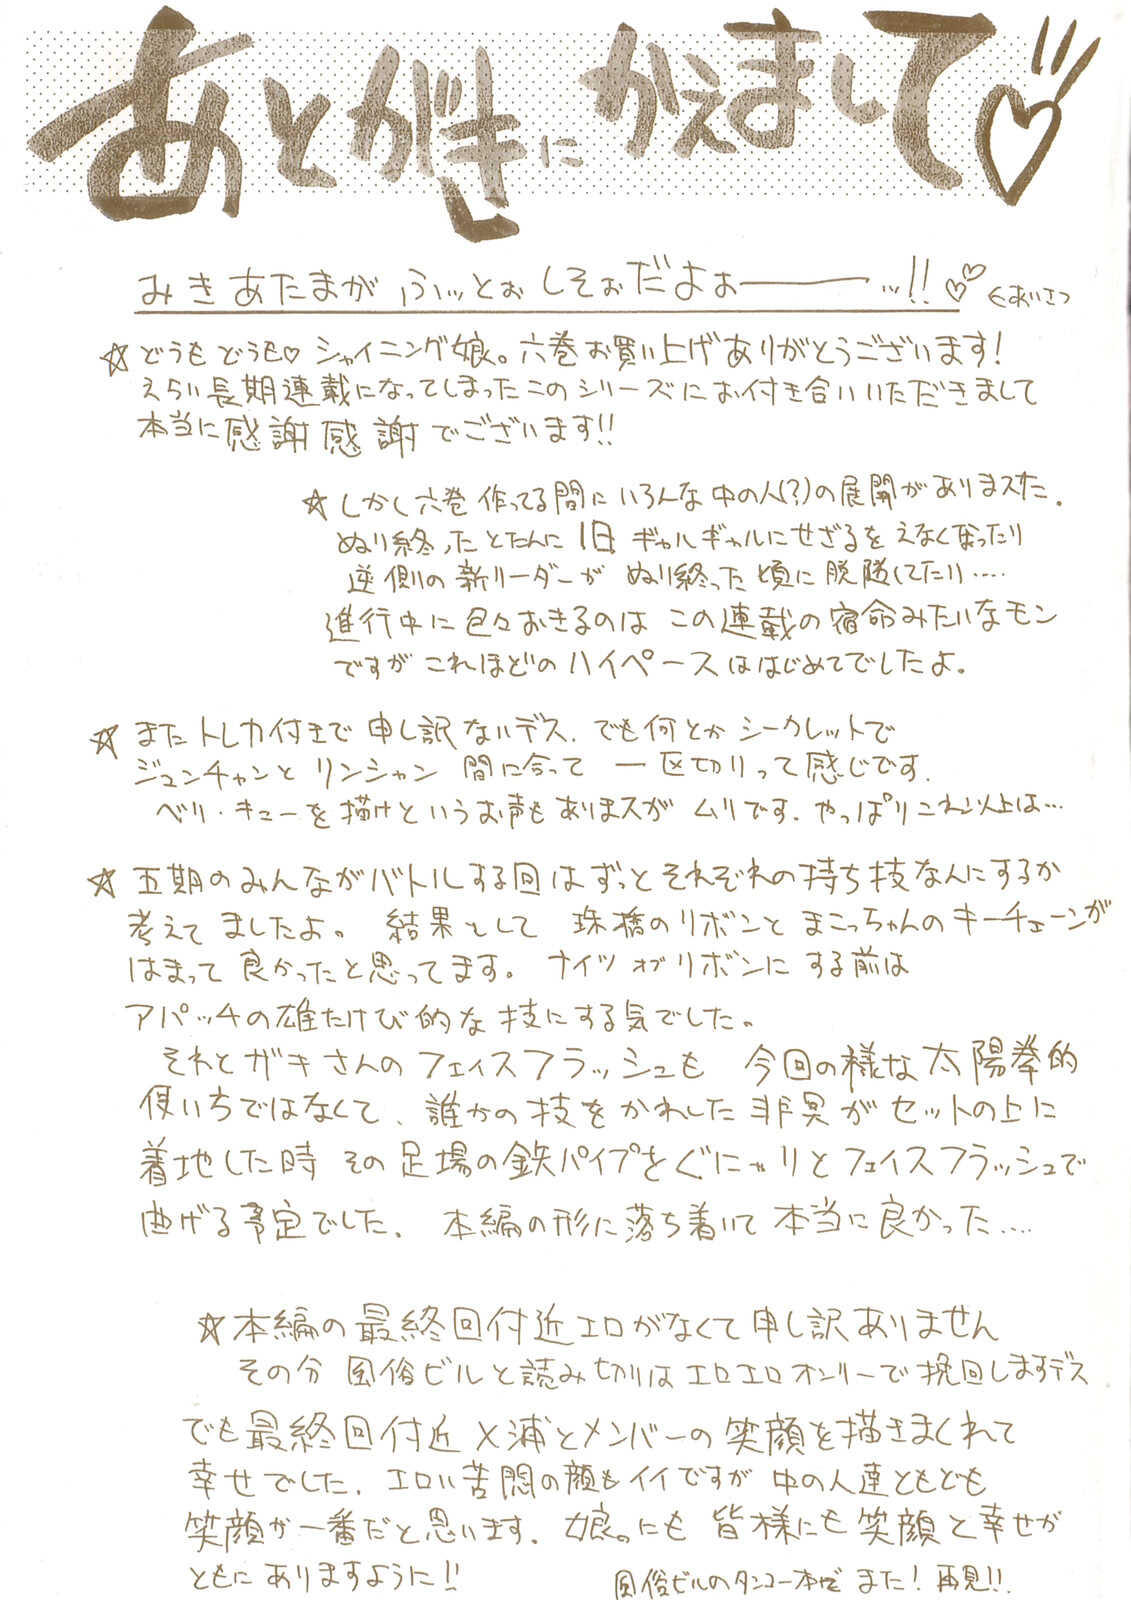 あとがきにかえまして♡
みきあたまがふぃっとぉしそぉだよぉ――…!!♡♡ ←あいさつ
☆どうもどうも♡シャイニング娘。六巻お買い上げありがとうございます!
えらい長期連載になってしまったこのシリーズにお付き合いいただきまして
本当に感謝感謝でございます!!
☆しかし六巻作ってる間にいろんな中の人(?)の展開がありまスた.
ぬり終ったとたんに1日ギャルギャルにせざるをえなくなったり
逆側の新リーダーがぬり終った頃に脱隊してたり....
進行中に色々おきるのはこの連載の宿命みたいなモン
ですがこれほどのハイペースははじめてでしたよ。
☆またトレカ付きで申し訳ないデス.でも何とかシークレットで
ジュンチャンとリンシャン間に合って一区切りって感じです.
ベリ・キューを描けというお声もありまスがムリです.やっぱりこれ以上は…
☆五期のみんながバトルする回はずっとそれぞれの持ち技なんにするか
考えてましたよ。結果として 珠橋のリボンとまこっちゃんのキーチェーンが
はまって良かったと思ってます。ナイツオブリボンにする前は
アパッチの雄たけび的な技にする気でした。
それとガキさんのフェイスフラッシュも今回の様な太陽拳的
使いちではなくて、誰かの技をかわした非冥がセットの上に
着地した時その足場の鉄パイプをぐにゃりとフェイスフラッシュで
曲げる予定でした.本編の形に落ち着いて本当に良かった....
☆本編の最終回付近エロがなくて申し訳ありません
その分風俗ビルと読み切りはエロエロオンリーで挽回しますデス
でも最終回付近メ浦とメンバーの笑顔を描きまくれて
幸せでした.エロい苦悶の顔もイイですが中の人達ともども
笑顔が一番だと思います.娘。にも皆様にも笑顔と幸せが
ともにありますように!!
風俗ビルのタンコー本でまた!再見!!.